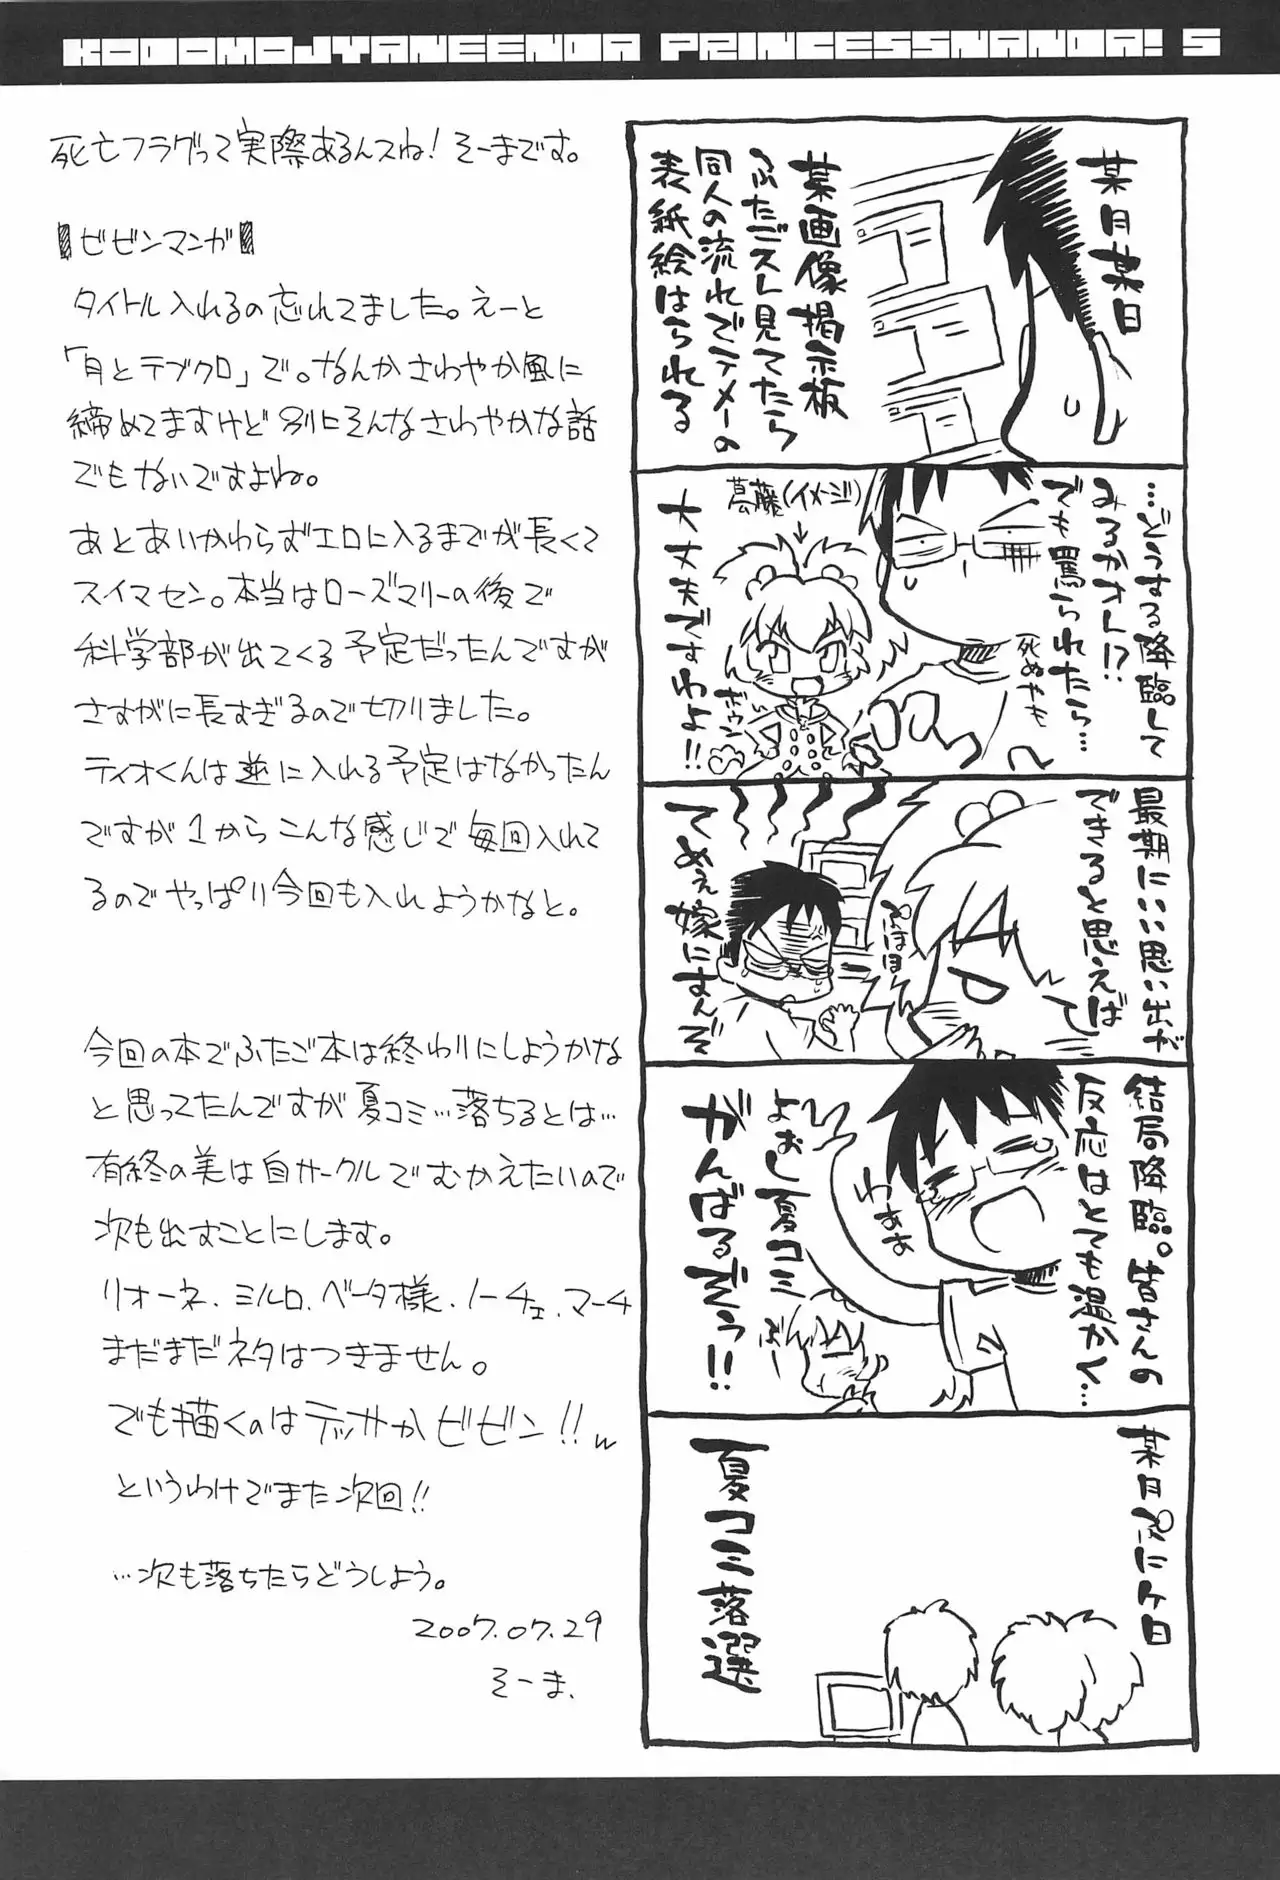 KODOMOJYANEENDA PRINCESSNANDA! 5
死亡フラグって実際あるんスね! そーまです。
【ビゼンマンガ】
タイトル入れるの忘れてました。えーと
「月とテブクロ」で。なんかさわやか風に
締めてますけど別にそんなさわやかな話
でもないですよね。
あとあいかわらずエロに入るまでが長くて
スイマセン。本当はローズマリーの後で
科学部が出てくる予定だったんですが
さすがに長すぎるので切りました。
ティオくんは並に入れる予定はなかったん
ですが1からこんな感じで毎回入れて
るのでやっぱり今回も入れようかなと。
今回の本でふたご本は終わりにしようかな
と思ってたんですが夏コミ…落ちるとは…
有終の美は自サークルでむかえたいので
次も出すことにします。
リオーネ、ミルロ、ベータ様、ノーチェ、マーチ
まだまだネタはつきません。
でも描くのはデッサかビゼン!!w
というわけでまた次回!!
…次も落ちたらどうしよう。
2007.07.29
そーま.
某月某日
某画像掲示板
ふたごスレ見てたら
同人の流れでテメーの
表紙絵はられる
…どうする降臨して
みるかオレ!?
でも罵られたら…
死ぬやも
葛藤(イメージ)
大丈夫ですわよ!!
ボゥン
最期にいい思い出が
できると思えば
ぷほほ
てめぇ嫁にすんぞ
結局降臨。皆さんの
反応はとても温かく…
わぁぁ
よおし夏コミ
がんばるぞぅ!!
よー
夏コミ落選